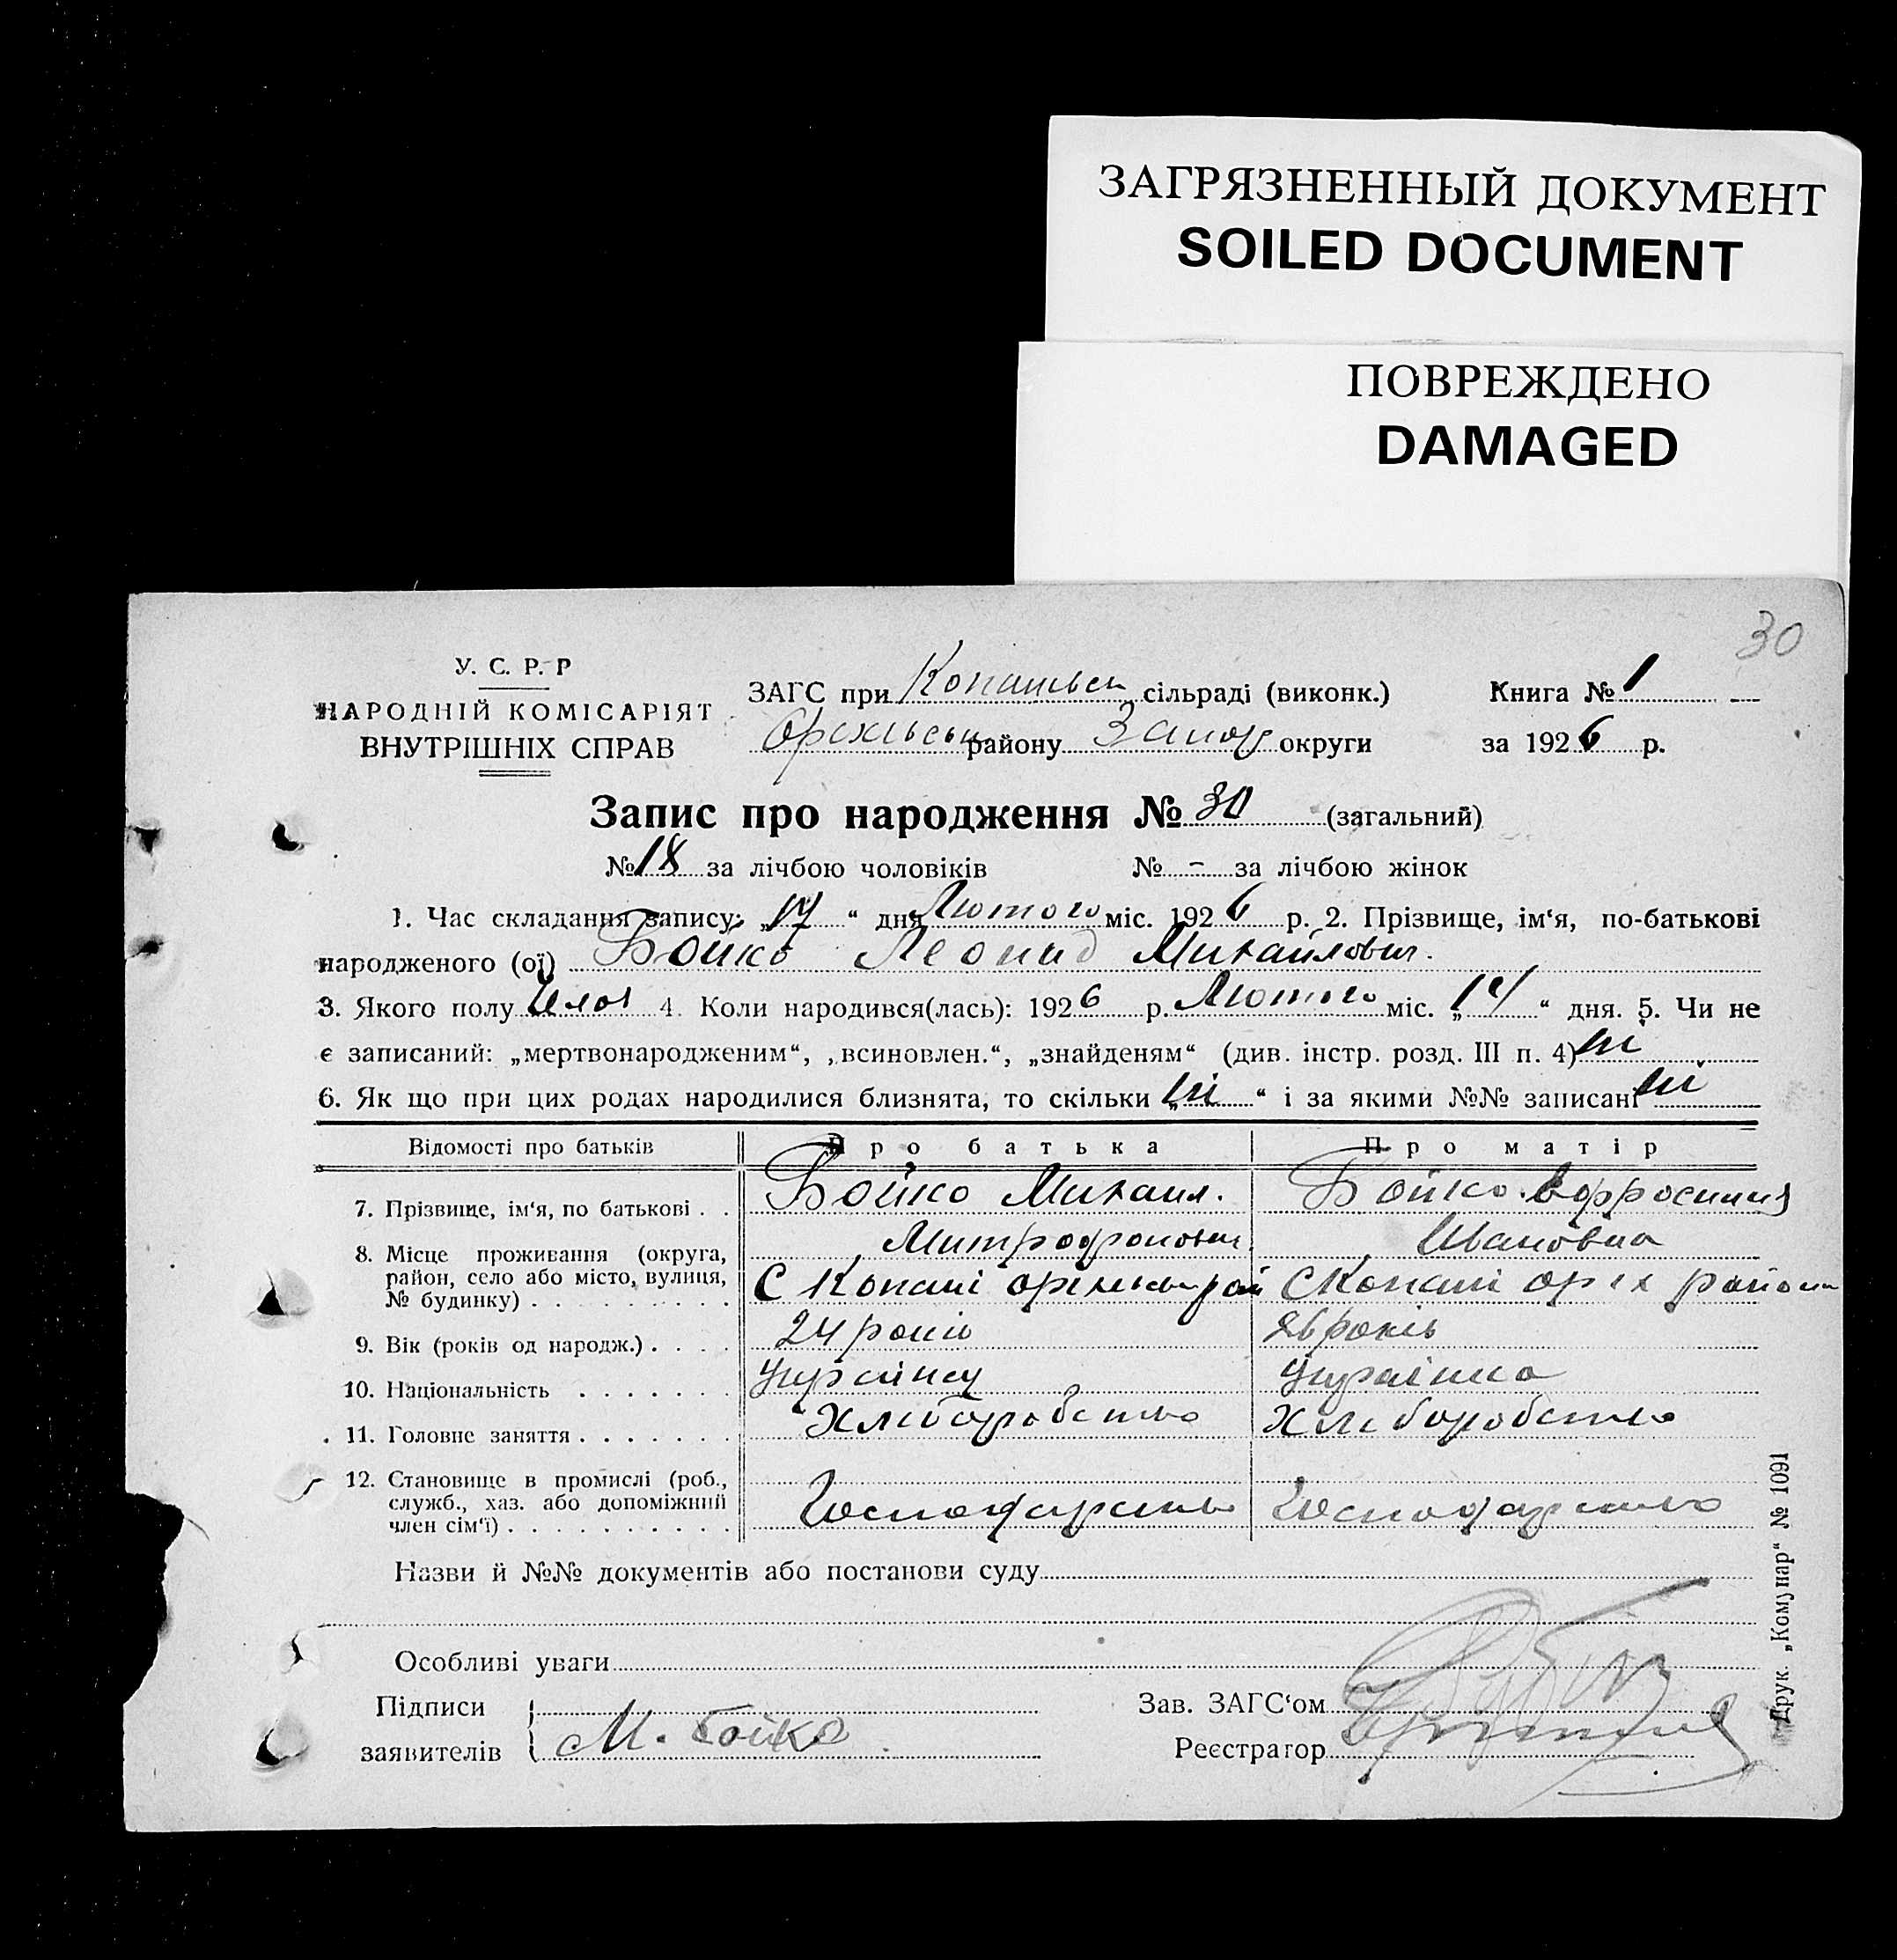 ЗАГРЯЗНЕННЫЙ ДОКУМЕНТ
SOILED DOCUMENT
ПОВРЕЖДЕНО
DAMAGED
30
У. С. Р. Р
НАРОДНІЙ КОМІСАРІЯТ
ВНУТРІШНІХ СПРАВ
ЗАГС при Копанськ сільраді (виконк.) Книга № 1
Оріхівськ району Запор округи за 1926 р.
Запис про народження № 30 (загальний)
№ 18 за лічбою чоловіків № – за лічбою жінок
1. Час складання запису: „17“ дня Лютого міс. 1926 р. 2. Прізвище, ім‘я, по-батькові
народженого (ої) Бойко Леонид Михайлович.
3. Якого полу 4. Коли народився(лась): 1926 р. Лютого міс. „14“ дня. 5. Чи не
є записаний: „мертвонародженим“, „всиновлен.“, „знайденям“ (див. інстр. розд. III п. 4) ні
6. Як що при цих родах народилися близнята, то скільки „ні“ і за якими №№ записані ні
Відомості про батьків Про батька Про матір
7. Прізвище, ім‘я, по батькові . . Бойко Михаил. Бойко Ефросиния
Митрофанович. Ивановна
8. Місце проживання (округа,
район, село або місто, вулиця,
№ будинку) . . . . . . . . . . С Копані оріхівськ рай С Копані оріх района
9. Вік (років од народж.) . . . . 24 років 26 років
10. Національність . . . . . . . Українец Українка
11. Головне заняття . . . . . . . Хліборобство Хліборобство
12. Становище в промислі (роб.,
служб., хаз. або допоміжний
член сім‘ї) . . . . . . . . . . Господарство Господарство
Назви й №№ документів або постанови суду
Особливі уваги
Підписи
заявителів М. Бойко
Зав. ЗАГС‘ом
Реєстратор
Друк. „Комунар“ № 1091